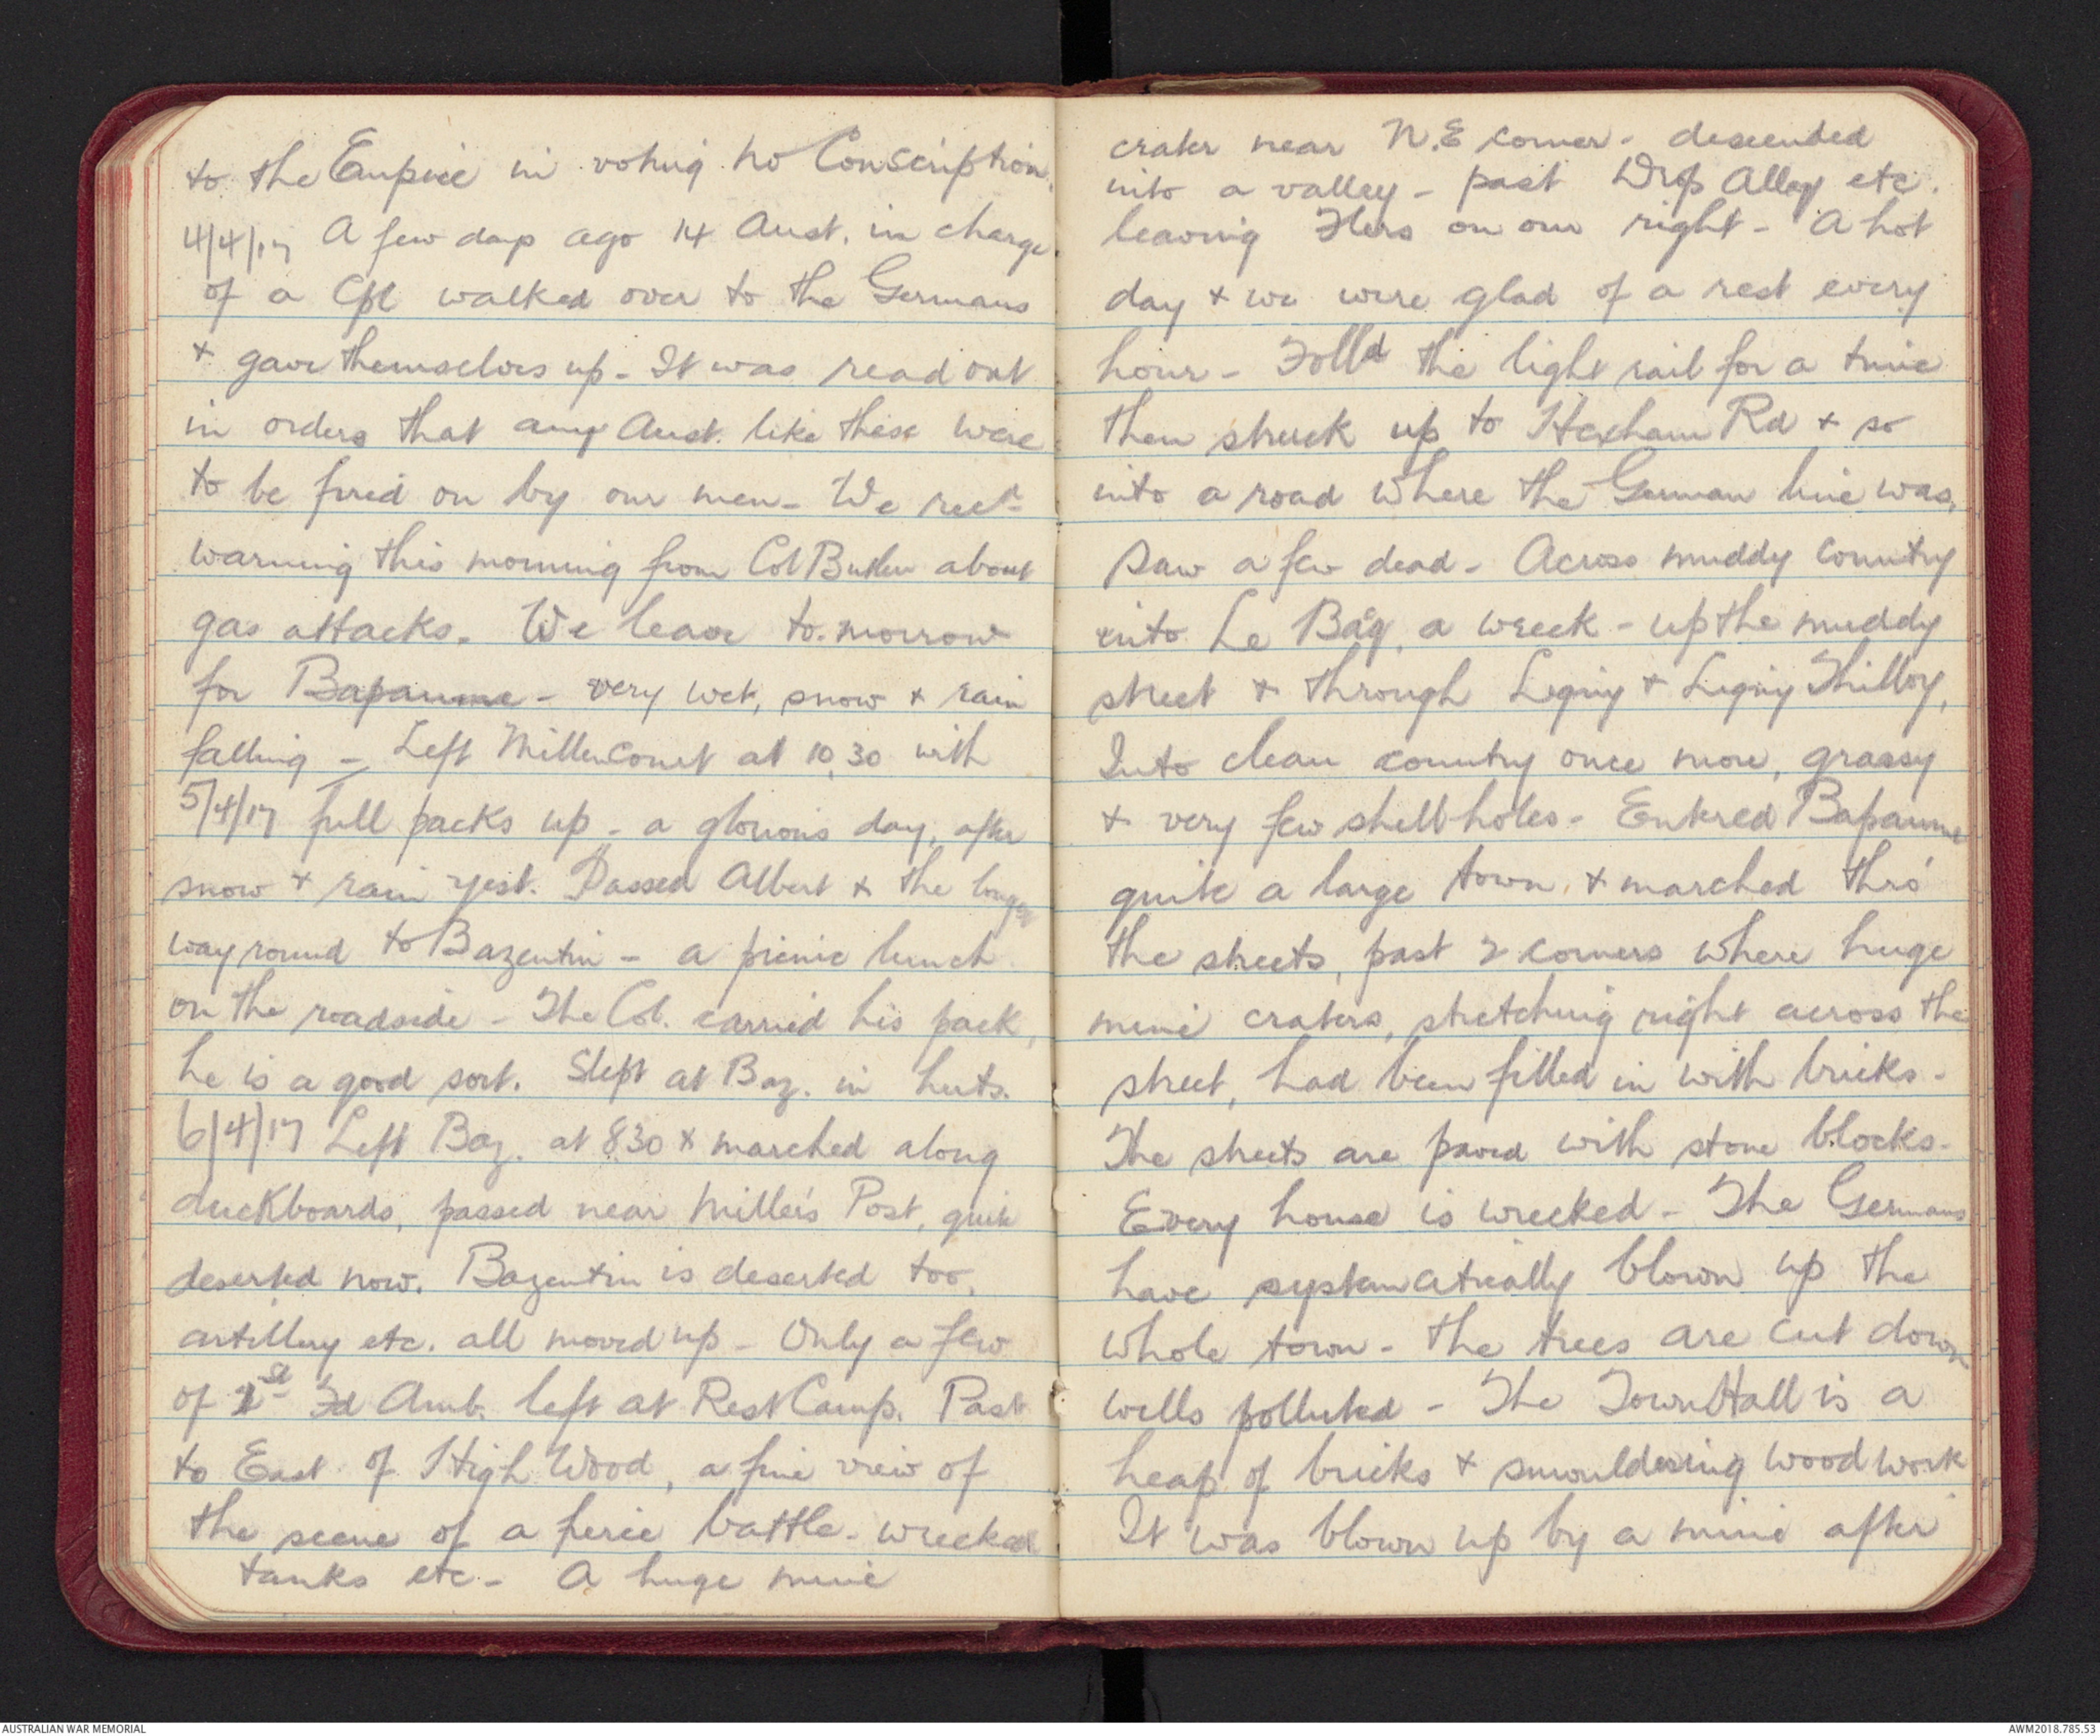 to the Empire in voting no Conscription.
4/4/17 A few days ago 14 Aust. in charge
of a Cpl walked over to the Germans
+ gave themselves up - It was read out
in orders that any Aust. like these were
to be fired on by our men - We recd
warning this morning from Col Butler about
gas attacks. We leave to-morrow
for Bapaume - very wet, snow + rain
falling - Left Millencourt at 10.30 with
5/4/17 full packs up - a glorious day, after
snow + rain yest. Passed Albert + the longer
way round to Bazentin - a picnic lunch
on the roadside - The Col. carried his pack,
he is a good sort. Slept at Baz. in huts.
6/4/17 Left Baz. at 8.30 + marched along
duckboards, passed near Miller's Post, quite
deserted now. Bazentin is deserted too,
artillery etc. all moved up - Only a few
of 1st Fd Amb. left at Rest Camp. Past
to East of High Wood, a fine view of
the scene of a fierce battle - wrecked
tanks etc - A huge mine
crater near N.E corner - descended
into a valley - past Drop Alley etc.
leaving Flers on our right - A hot
day + we were glad of a rest every
hour - Folld the light rail for a time
then struck up to Hexham Rd + so
into a road where the German line was,
saw a few dead - Across muddy country
into Le Barq, a wreck - up the muddy
street + through Ligny + Ligny Thilloy,
Into clean country once more, grassy
+ very few shell holes - Entered Bapaume
quite a large town, + marched thro'
the streets, past 2 corners where huge
mine craters, stretching right across the
street, had been filled in with bricks -
The streets are paved with stone blocks -
Every house is wrecked - The Germans
have systematically blown up the
whole town - the trees are cut down
wells polluted - The Town Hall is a
heap of bricks + smouldering wood work
It was blown up by a mine after
AUSTRALIAN WAR MEMORIAL
AWM2018.785.53